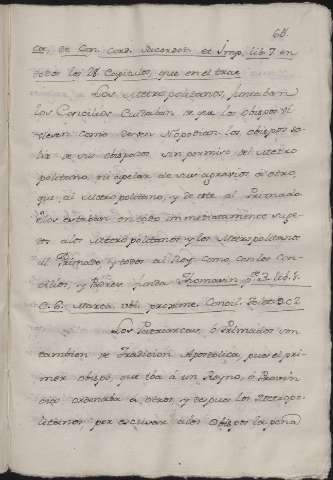 68.
de Con. Cord. Sacerdot. et Imp. lib. 7 en
todos los 28 Capitulos, que en el trae
Los Metropolitanos, juntaban
los Concilios Cuidaban de que los obispos vi
viesen como deven No podian los obispos sa
lir de sus obispados sin permiso del Metro
politano, ni apelar de sus agravios a otro,
que, al Metropolitano, y de este al Primado
ellos estaban en todo immediatamente suge
tos a los Metropolitanos y los Metropolitanos
al Primado, y todos al Rey como con los Con
cilios, y Padres junta Thomasin p. 2. lib. 1.
C. 6. Marca ubi proxime. Concil. Tolet. 3 C 2
Los Patriarcas, ó Primados son
tambien de Tradicion Apostolica, pues el pri
mer obispo, que iba á un Reyno, ó Provin
cia ordenaba a otros y despues los Metropo
litanos por escusar a los obispos la pena